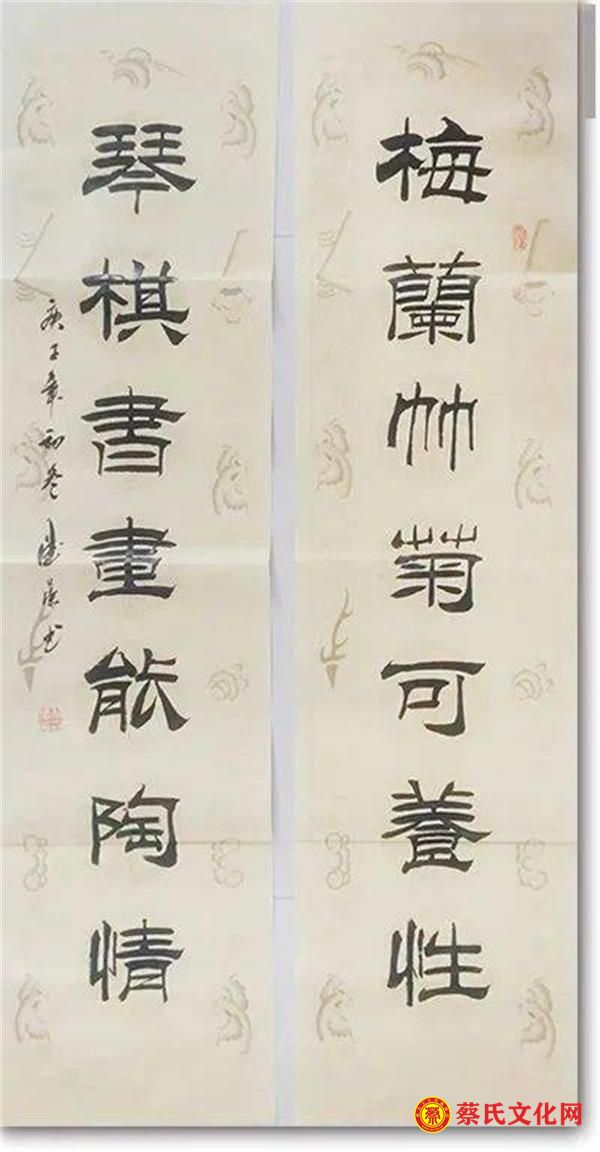 梅蘭竹菊可養性
琴棋書畫能陶情
庚子年初冬
書
蔡氏文化网